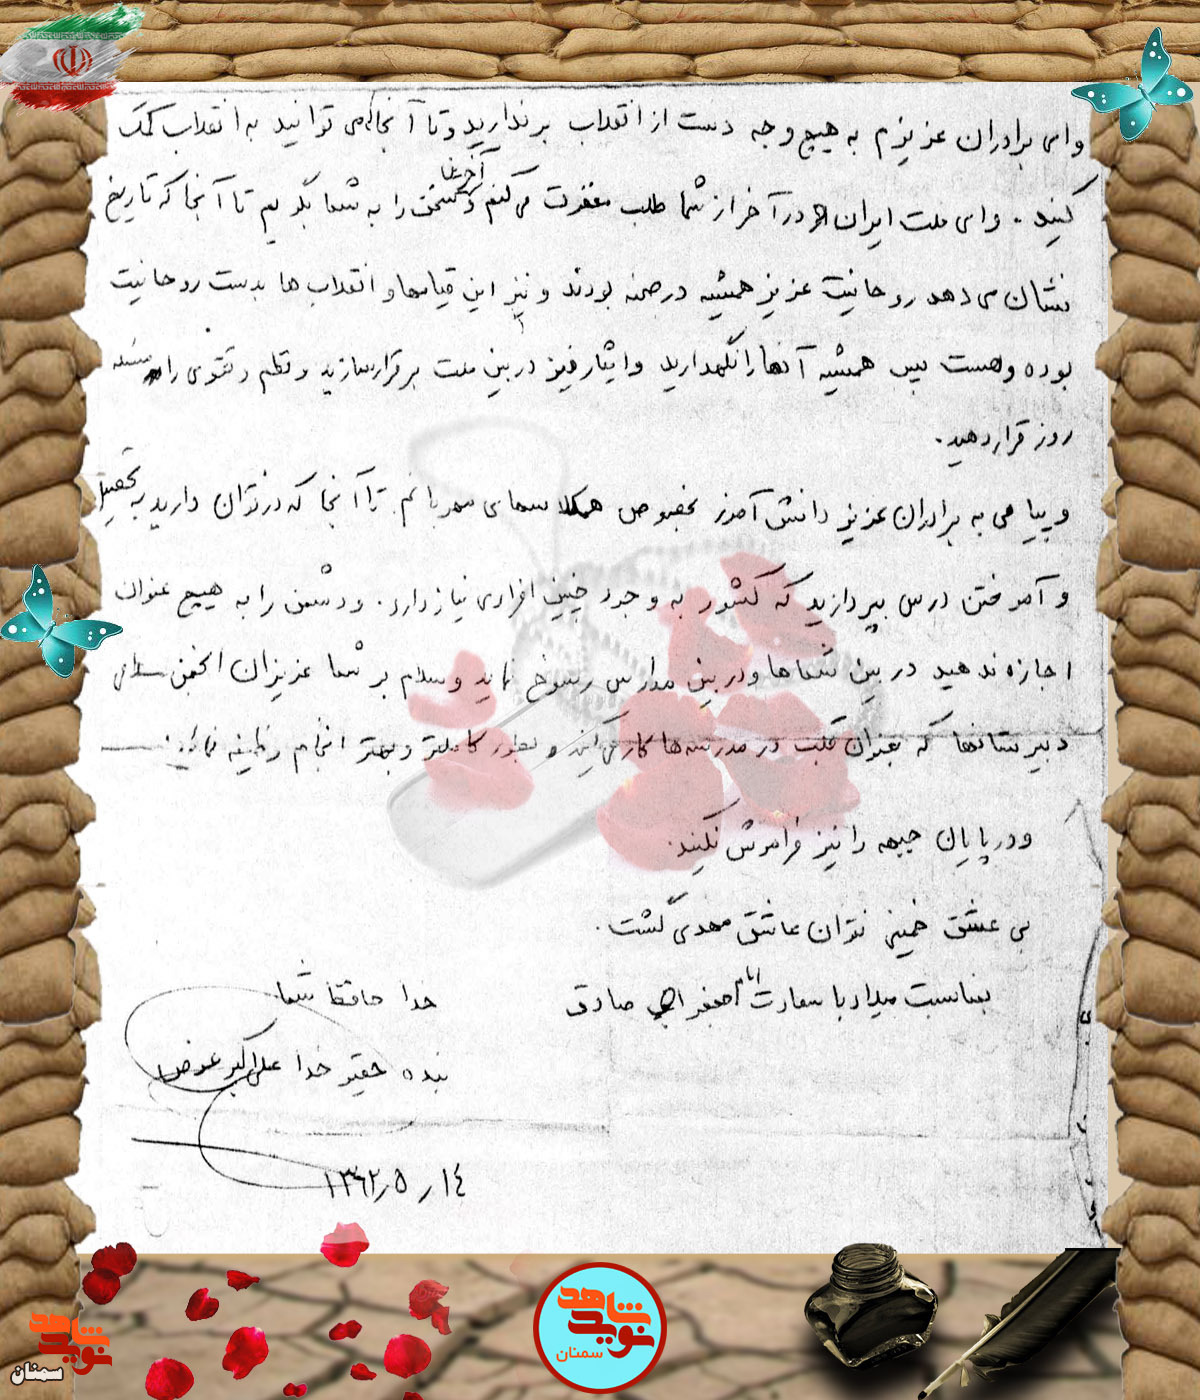 وای برادران عزیزم به هیچ وجه دست از انقلاب برندارید و تا آنجا که می توانید به انقلاب کمک
کنید. وای ملت ایران در آخر از شما طلب مغفرت می کنم و آخرین سخنم را به شما بگویم تا آنجا که تاریخ
نشان می دهد روحانیت عزیز همیشه در صحنه بودند و نیز این قیامها و انقلاب ها بدست روحانیت
بوده و هست پس همیشه آنها را نگهدارید و ایثار نیز در بین ملت برقرار سازید و نظم و تقوی را
روز قرار دهید.
و پیامی به برادران عزیز دانش آموز بخصوص همکلاسهای مهربانم تا آنجا که در توان دارید به تحصیل
و آموختن درس بپردازید که کشور به وجود چنین افرادی نیاز دارد. و دشمن را به هیچ عنوان
اجازه ندهید در بین شماها و در بین مدارس رسوخ نماید و سلام بر شما عزیزان انجمن اسلامی
دبیرستانها که بعنوان قلب در مدرسه ها کار می کنند و بطور کاملتر و بهتر انجام وظیفه نمائید
و در پایان جبهه را نیز فراموش نکنید.
بی عشق خمینی نتوان عاشق مهدی گشت.
بمناسبت میلاد با سعادت امام جعفر صادق
خدا حافظ شما
بنده حقیر خدا علی اکبر عوض
۱۴ ر ۵ ر ۱۳۶۲
شاهد
نوید
سمنان
شاهد
نوید
سمنان